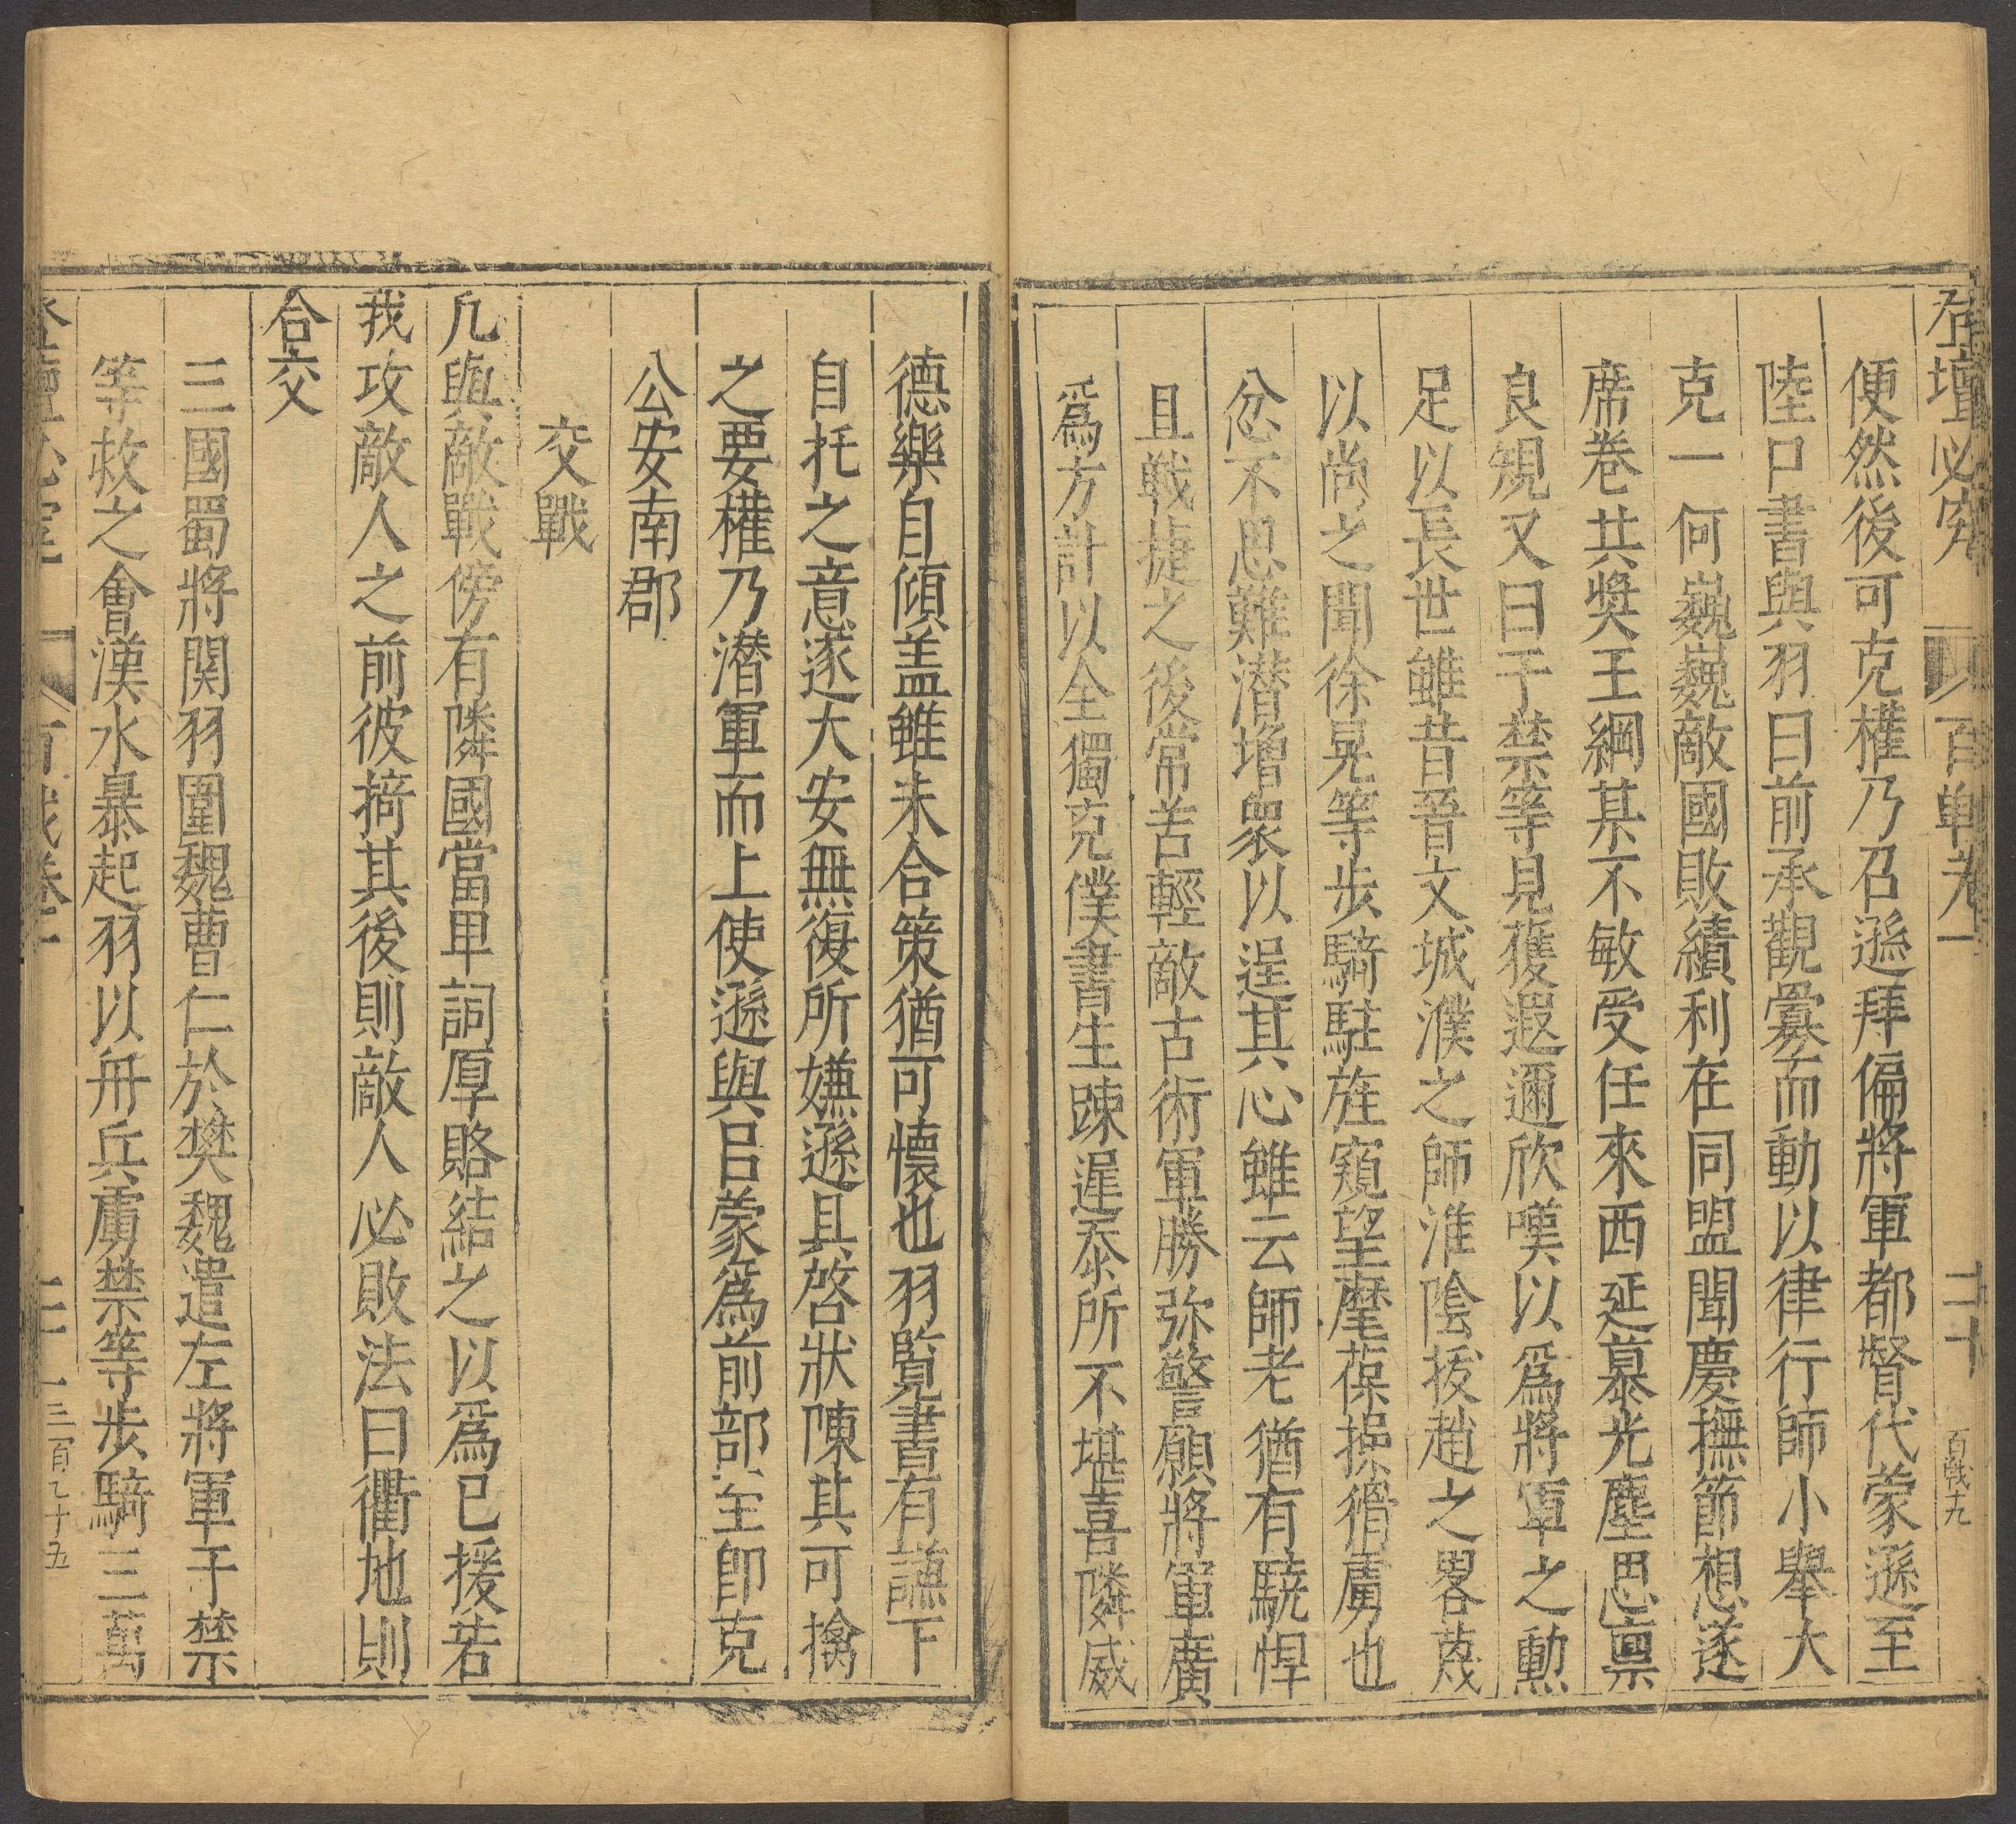 登壇必究 百戰卷一 二十 百戰九
便然後可克權乃召遜拜偏將軍都督代蒙遜至
陸口書與羽曰前承觀釁而動以律行師小舉大
克一何巍巍敵國敗績利在同盟聞慶撫節想遂
席卷共奬王綱某不敏受任來西延慕光塵思禀
良規又曰于禁等見獲遐邇欣嘆以爲將軍之勳
足以長世雖昔晉文城濮之師淮陰拔趙之畧蔑
以尚之聞徐晃等步騎駐旌窺望麾葆操猾虜也
忿不思難潛增衆以逞其心雖云師老猶有驍悍
且戰捷之後常苦輕敵古術軍勝弥警願將軍廣
爲方計以全獨克僕書生踈遲忝所不堪喜隣威
德樂自傾盖雖未合策猶可懷也羽覧書有謙下
自托之意遂大安無復所嫌遜具啓狀陳其可擒
之要權乃潛軍而上使遜與吕蒙爲前部至卽克
公安南郡
交戰
凢與敵戰傍有隣國當卑詞厚賂結之以爲已援若
我攻敵人之前彼掎其後則敵人必敗法曰衢地則
合交
三國蜀將関羽圍魏曹仁於樊魏遣左將軍于禁
等救之會漢水暴起羽以舟兵虜禁等步騎三萬
登壇必究 百戰卷一 三百乙十五